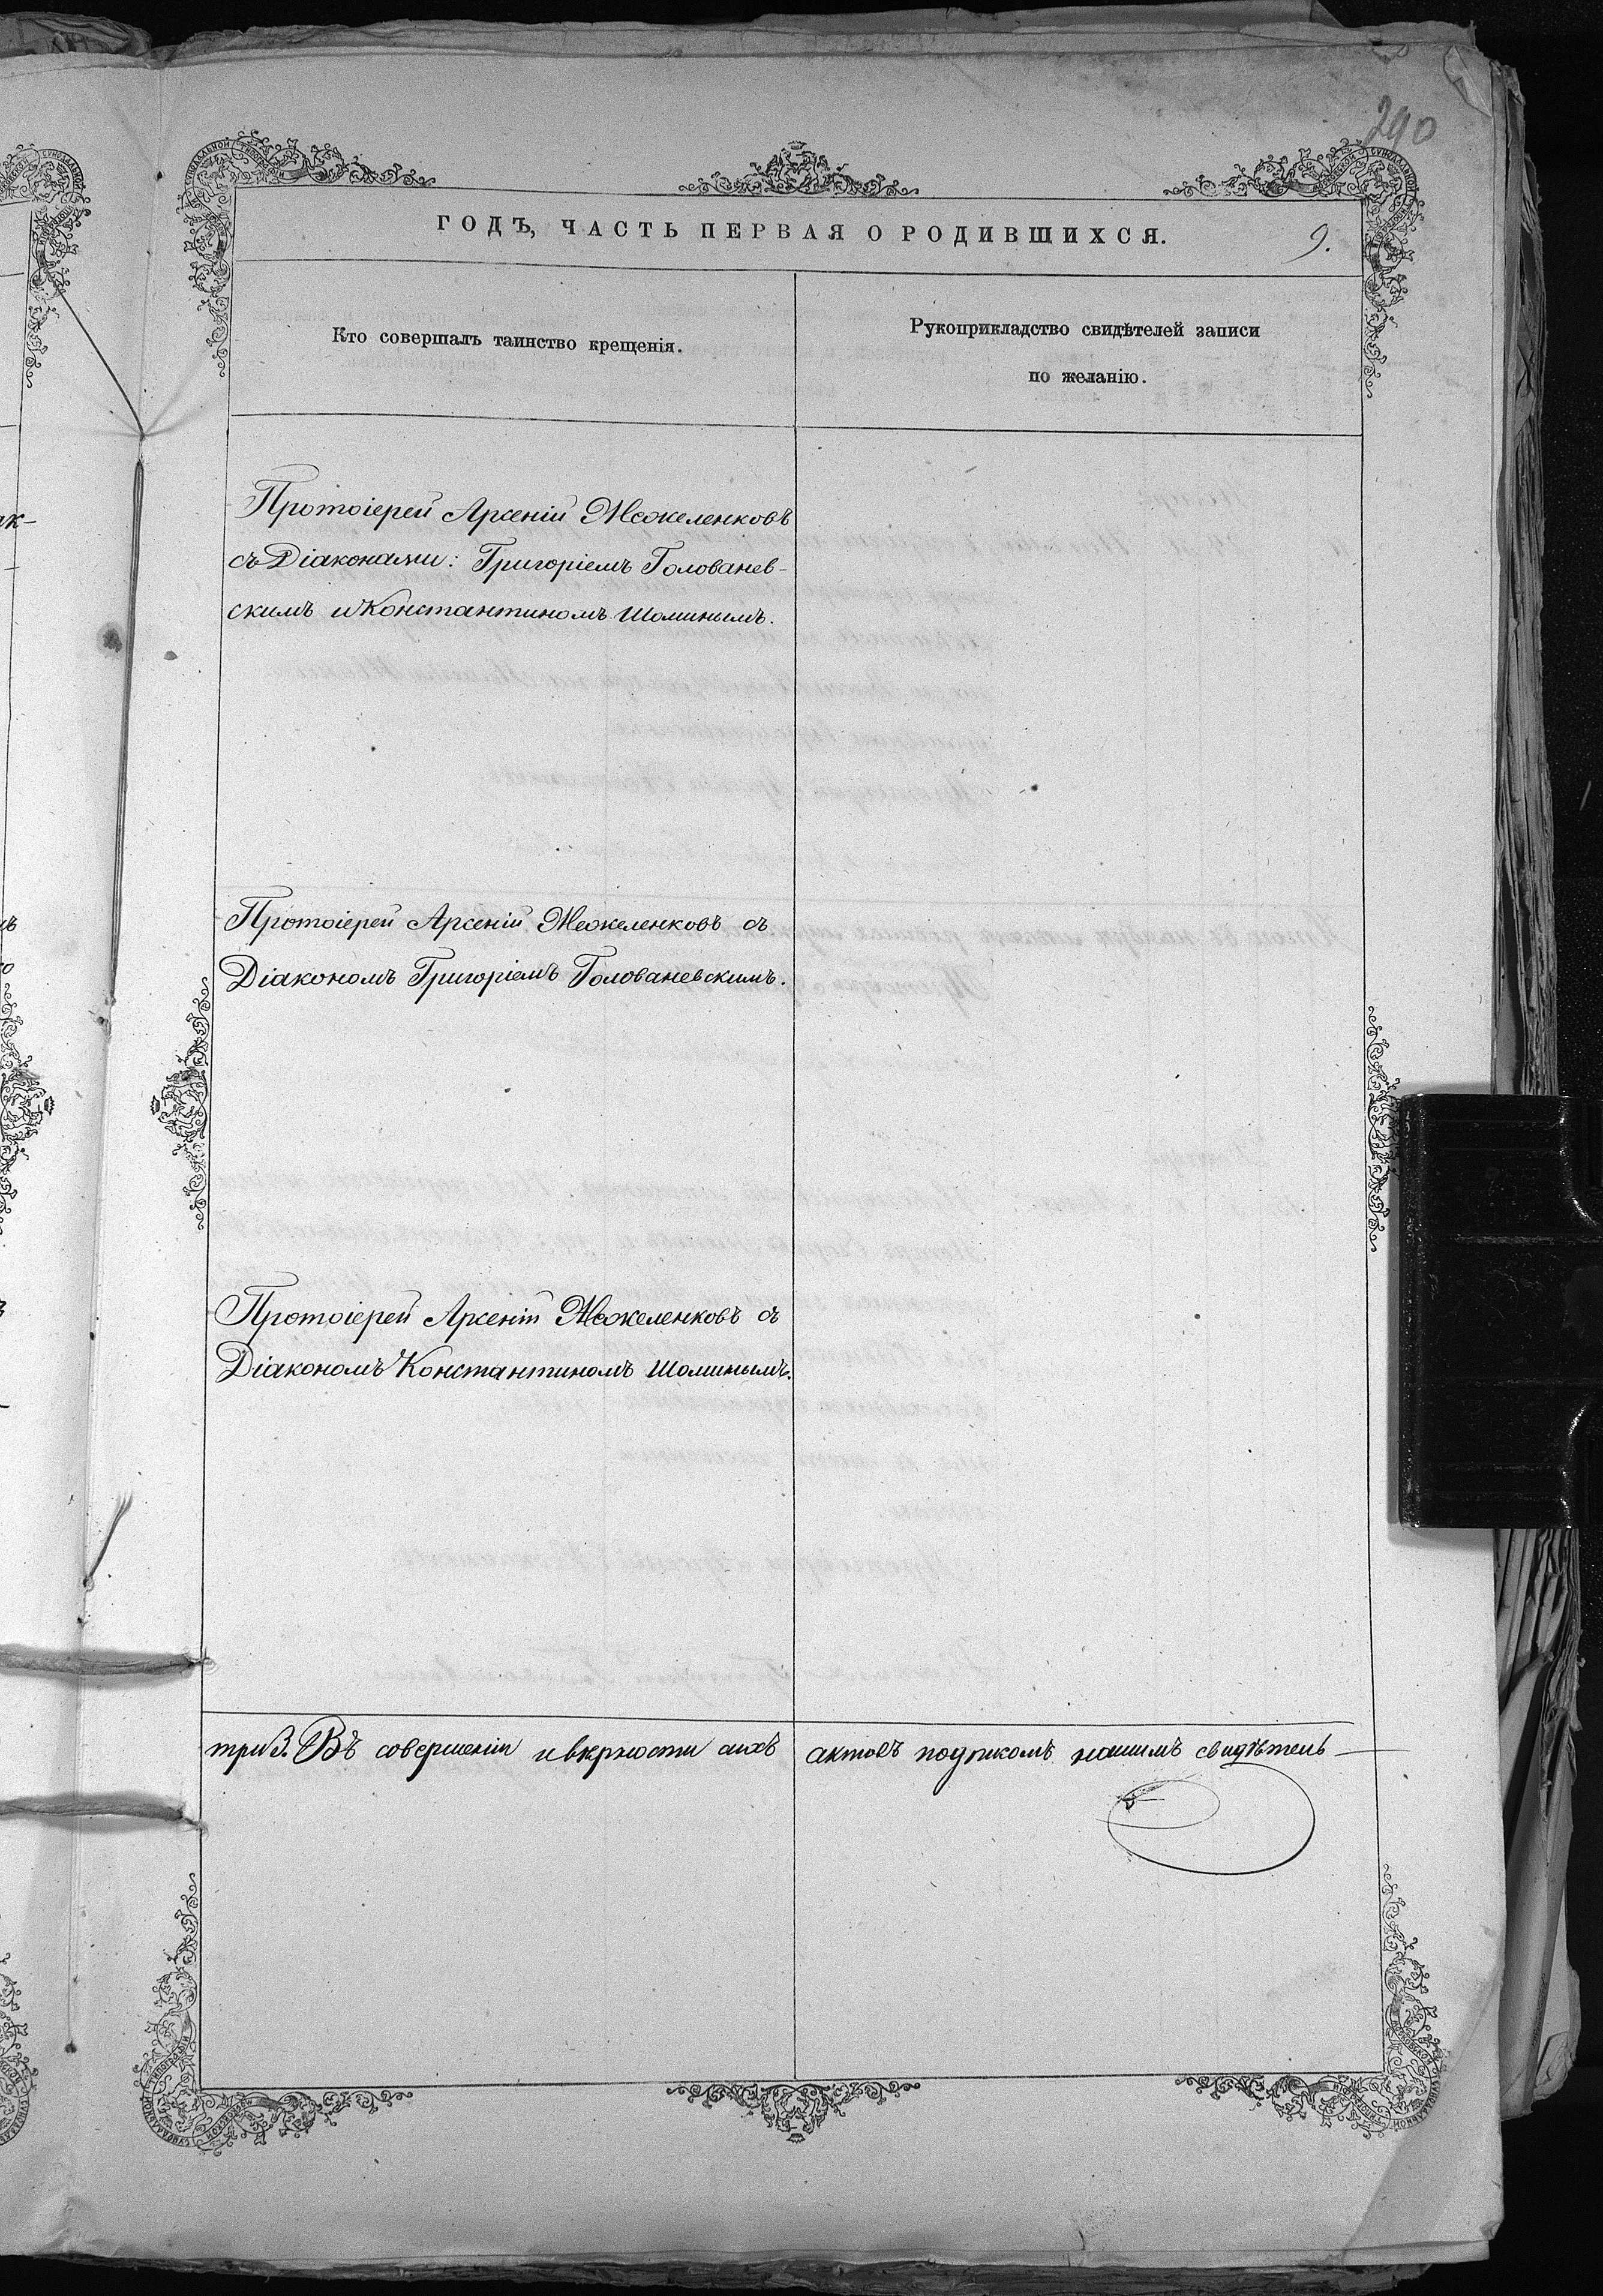 290
ГОДЪ, ЧАСТЬ ПЕРВАЯ О РОДИВШИХСЯ.
9.
Кто совершалъ таинство крещенія.
Рукоприкладство свидѣтелей записи
по желанію.
Протоіерей Арсеній Межеленковъ
съ Діаконами: Григоріемъ Голованев-
скимъ и Константиномъ Шоминымъ.
Протоіерей Арсеній Межеленковъ съ
Діакономъ Григоріемъ Голованевскимъ.
Протоіерей Арсеній Межеленковъ съ
Діакономъ Константиномъ Шоминымъ.
три 3. Въ совершеніи и вѣрности сихъ актовъ подписомъ нашимъ свидѣтель-